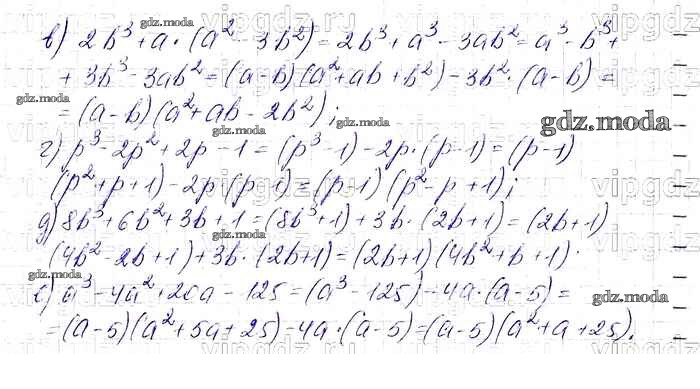 в) 2b³ + a · (a² - 3b²) = 2b³ + a³ - 3ab² = a³ - b³ +
+ 3b³ - 3ab² = (a - b)(a² + ab + b²) - 3b² · (a - b) =
= (a - b)(a² + ab - 2b²);
г) p³ - 2p² + 2p - 1 = (p³ - 1) - 2p · (p - 1) = (p - 1)
(p² + p + 1) - 2p (p - 1) = (p - 1)(p² - p + 1);
д) 8b³ + 6b² + 3b + 1 = (8b³ + 1) + 3b · (2b + 1) = (2b + 1)
(4b² - 2b + 1) + 3b · (2b + 1) = (2b + 1)(4b² + b + 1).
е) a³ - 4a² + 20a - 125 = (a³ - 125) - 4a · (a - 5) =
= (a - 5)(a² + 5a + 25) - 4a · (a - 5) = (a - 5)(a² + a + 25).
gdz.moda
gdz.moda
gdz.moda
gdz.moda
gdz.moda
gdz.moda
gdz.moda
gdz.moda
gdz.moda
gdz.moda
vipgdz.ru